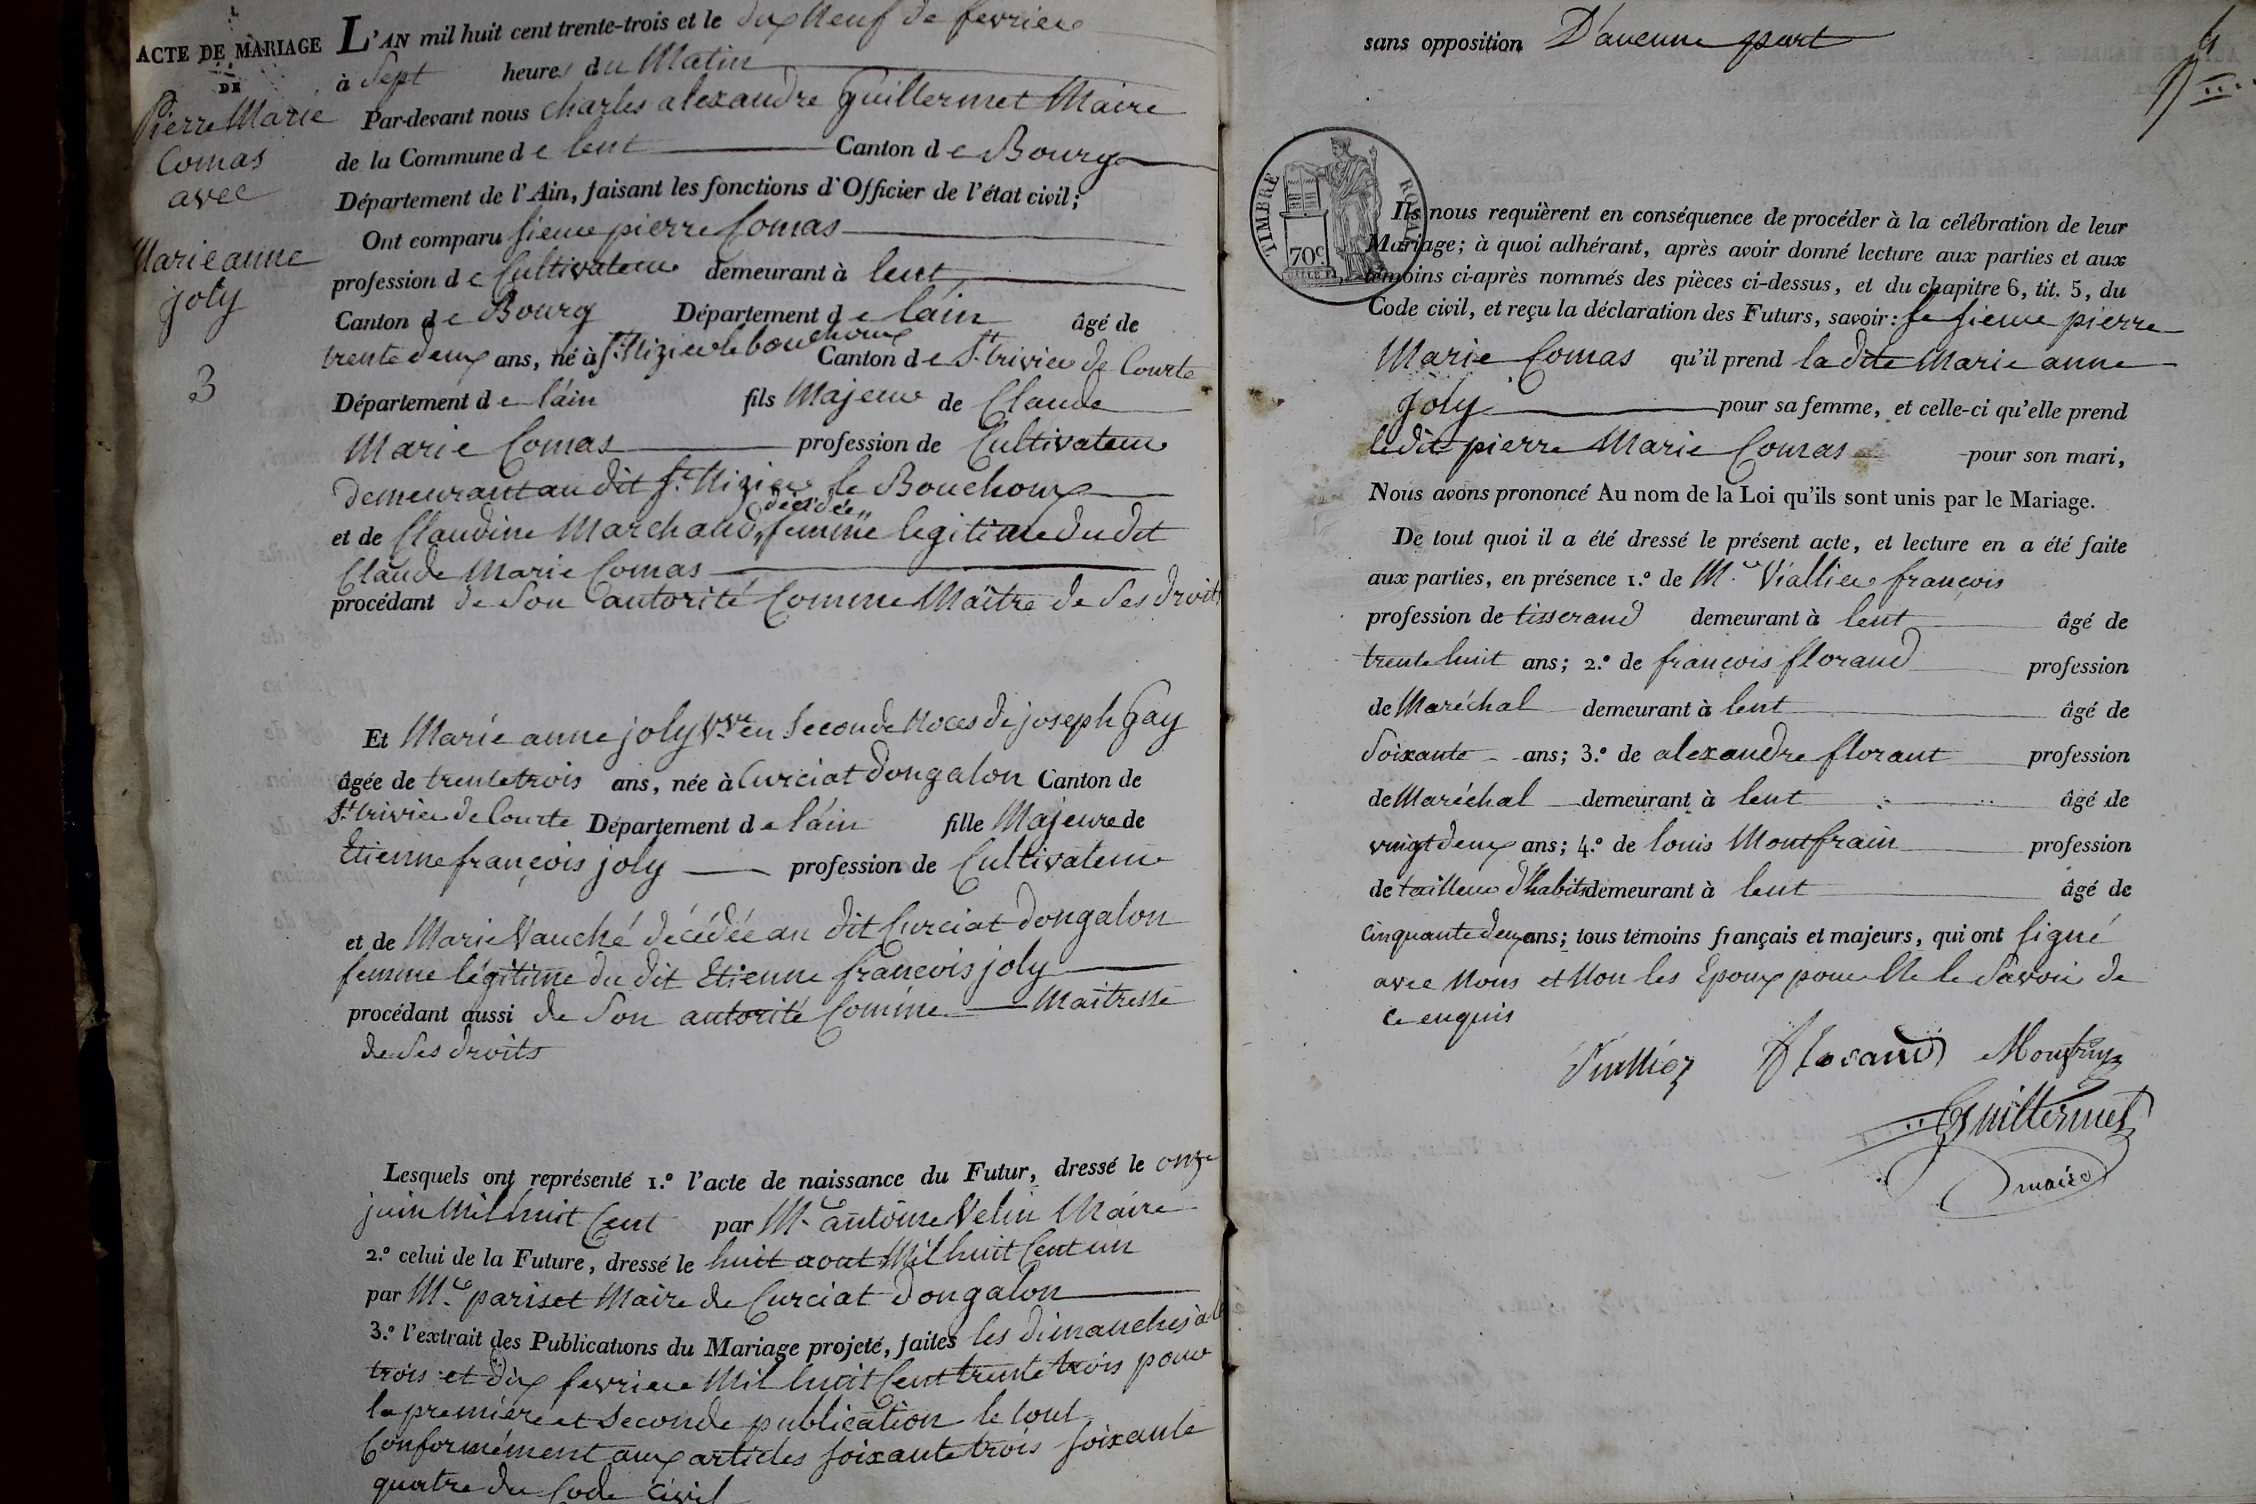 ACTE DE MARIAGE
DE
Pierre Marie
Comas
avec
Marie anne
joly
3
L'AN mil huit cent trente-trois et le dix Neuf de fevrier
à Sept heures du Matin
Par-devant nous Charles alexandre Guillermet Maire
de la Commune de lent Canton de Bourg
Département de l'Ain, faisant les fonctions d'Officier de l'état civil;
Ont comparu sieur pierre Comas
profession de Cultivateur demeurant à lent
Canton de Bourg Département de láin âgé de
trente deux ans, né à St. Nizier le bouchoux Canton de St. trivier de Courte
Département de láin fils Majeur de Claude
Marie Comas profession de Cultivateur
Demeurant au dit St. Nizier le Bouchoux
décédée
et de Claudine Marchand, femme legitime du dit
Claude Marie Comas
procédant de Son autorité Comme Maître de Ses droits
Et Marie anne joly Vve en Seconde Noces de joseph Gay
âgée de trente trois ans, née à Curciat Dongalon Canton de
St. trivier de Courte Département de láin fille Majeure de
Etienne françois joly profession de Cultivateur
et de Marie Vauché décédée au dit Curciat Dongalon
femme légitime du dit Etienne françois joly
procédant aussi de Son autorité Comme Maîtresse
de Ses droits
Lesquels ont représenté 1.º l'acte de naissance du Futur, dressé le onze
juin Mil huit Cent par Mr. antoine Velin Maire
2.º celui de la Future, dressé le huit aout Mil huit Cent un
par Mr. pariset Maire de Curciat Dongalon
3.º l'extrait des Publications du Mariage projeté, faites les dimanches
trois et dix fevrier Mil huit Cent trente trois pour
la première et Seconde publication le tout
Conformément aux articles soixante trois soixante
quatre du Code Civil
sans opposition D'aucune part
4
TIMBRE ROYAL
70c.
Ils nous requièrent en conséquence de procéder à la célébration de leur
Mariage; à quoi adhérant, après avoir donné lecture aux parties et aux
témoins ci-après nommés des pièces ci-dessus, et du chapitre 6, tit. 5, du
Code civil, et reçu la déclaration des Futurs, savoir: le sieur pierre
Marie Comas qu'il prend la dite Marie anne
Joly pour sa femme, et celle-ci qu'elle prend
le dit pierre Marie Comas pour son mari,
Nous avons prononcé Au nom de la Loi qu'ils sont unis par le Mariage.
De tout quoi il a été dressé le présent acte, et lecture en a été faite
aux parties, en présence 1.º de Mr. Viallier françois
profession de tisserand demeurant à lent âgé de
trente huit ans; 2.º de françois florand profession
de Maréchal demeurant à lent âgé de
Soixante ans; 3.º de alexandre florant profession
de Maréchal demeurant à lent âgé de
vingt deux ans; 4.º de louis Montfrain profession
de tailleur d'habits demeurant à lent âgé de
Cinquante deux ans; tous témoins français et majeurs, qui ont signé
avec Nous et Non les Epoux pour Ne le Savoir de
Ce enquis
florand
Guillermet
maire